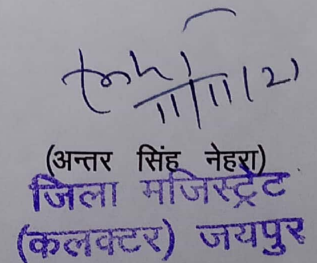 11/11/21
(अन्तर सिंह नेहरा)
जिला मजिस्ट्रेट
(कलक्टर) जयपुर